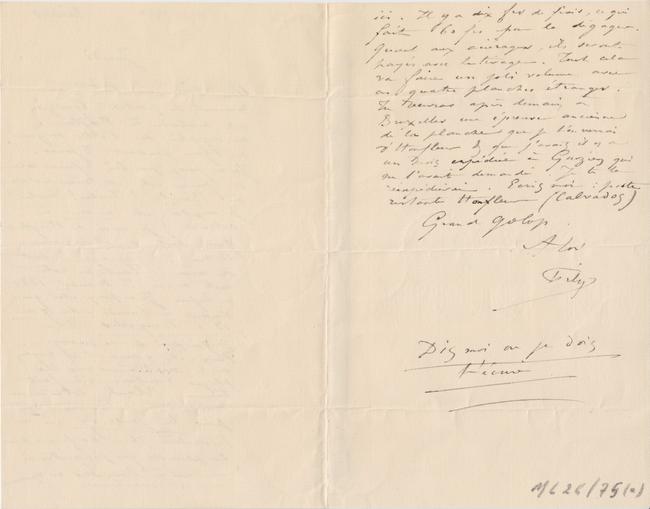 ici. Il y a dix frs de frais, ce qui
fait 60 frs pour le dégager.
Quant aux aciérages, ils seront
payés avec le tirage. Tout cela
va faire un joli volume avec
ces quatre planches étranges.
Tu trouveras après demain à
Bruxelles une épreuve ancienne
de la planche que je t'enverrai
d'Honfleur & que j'avais il y a
un mois expédiée à qui
me l'avait demandé. Je te la
réexpédierai. Ecris moi : poste
restante Honfleur (Calvados)
Grand Galop.
A toi
Dis moi où je dois
t'écrire
ML 26/75(a)